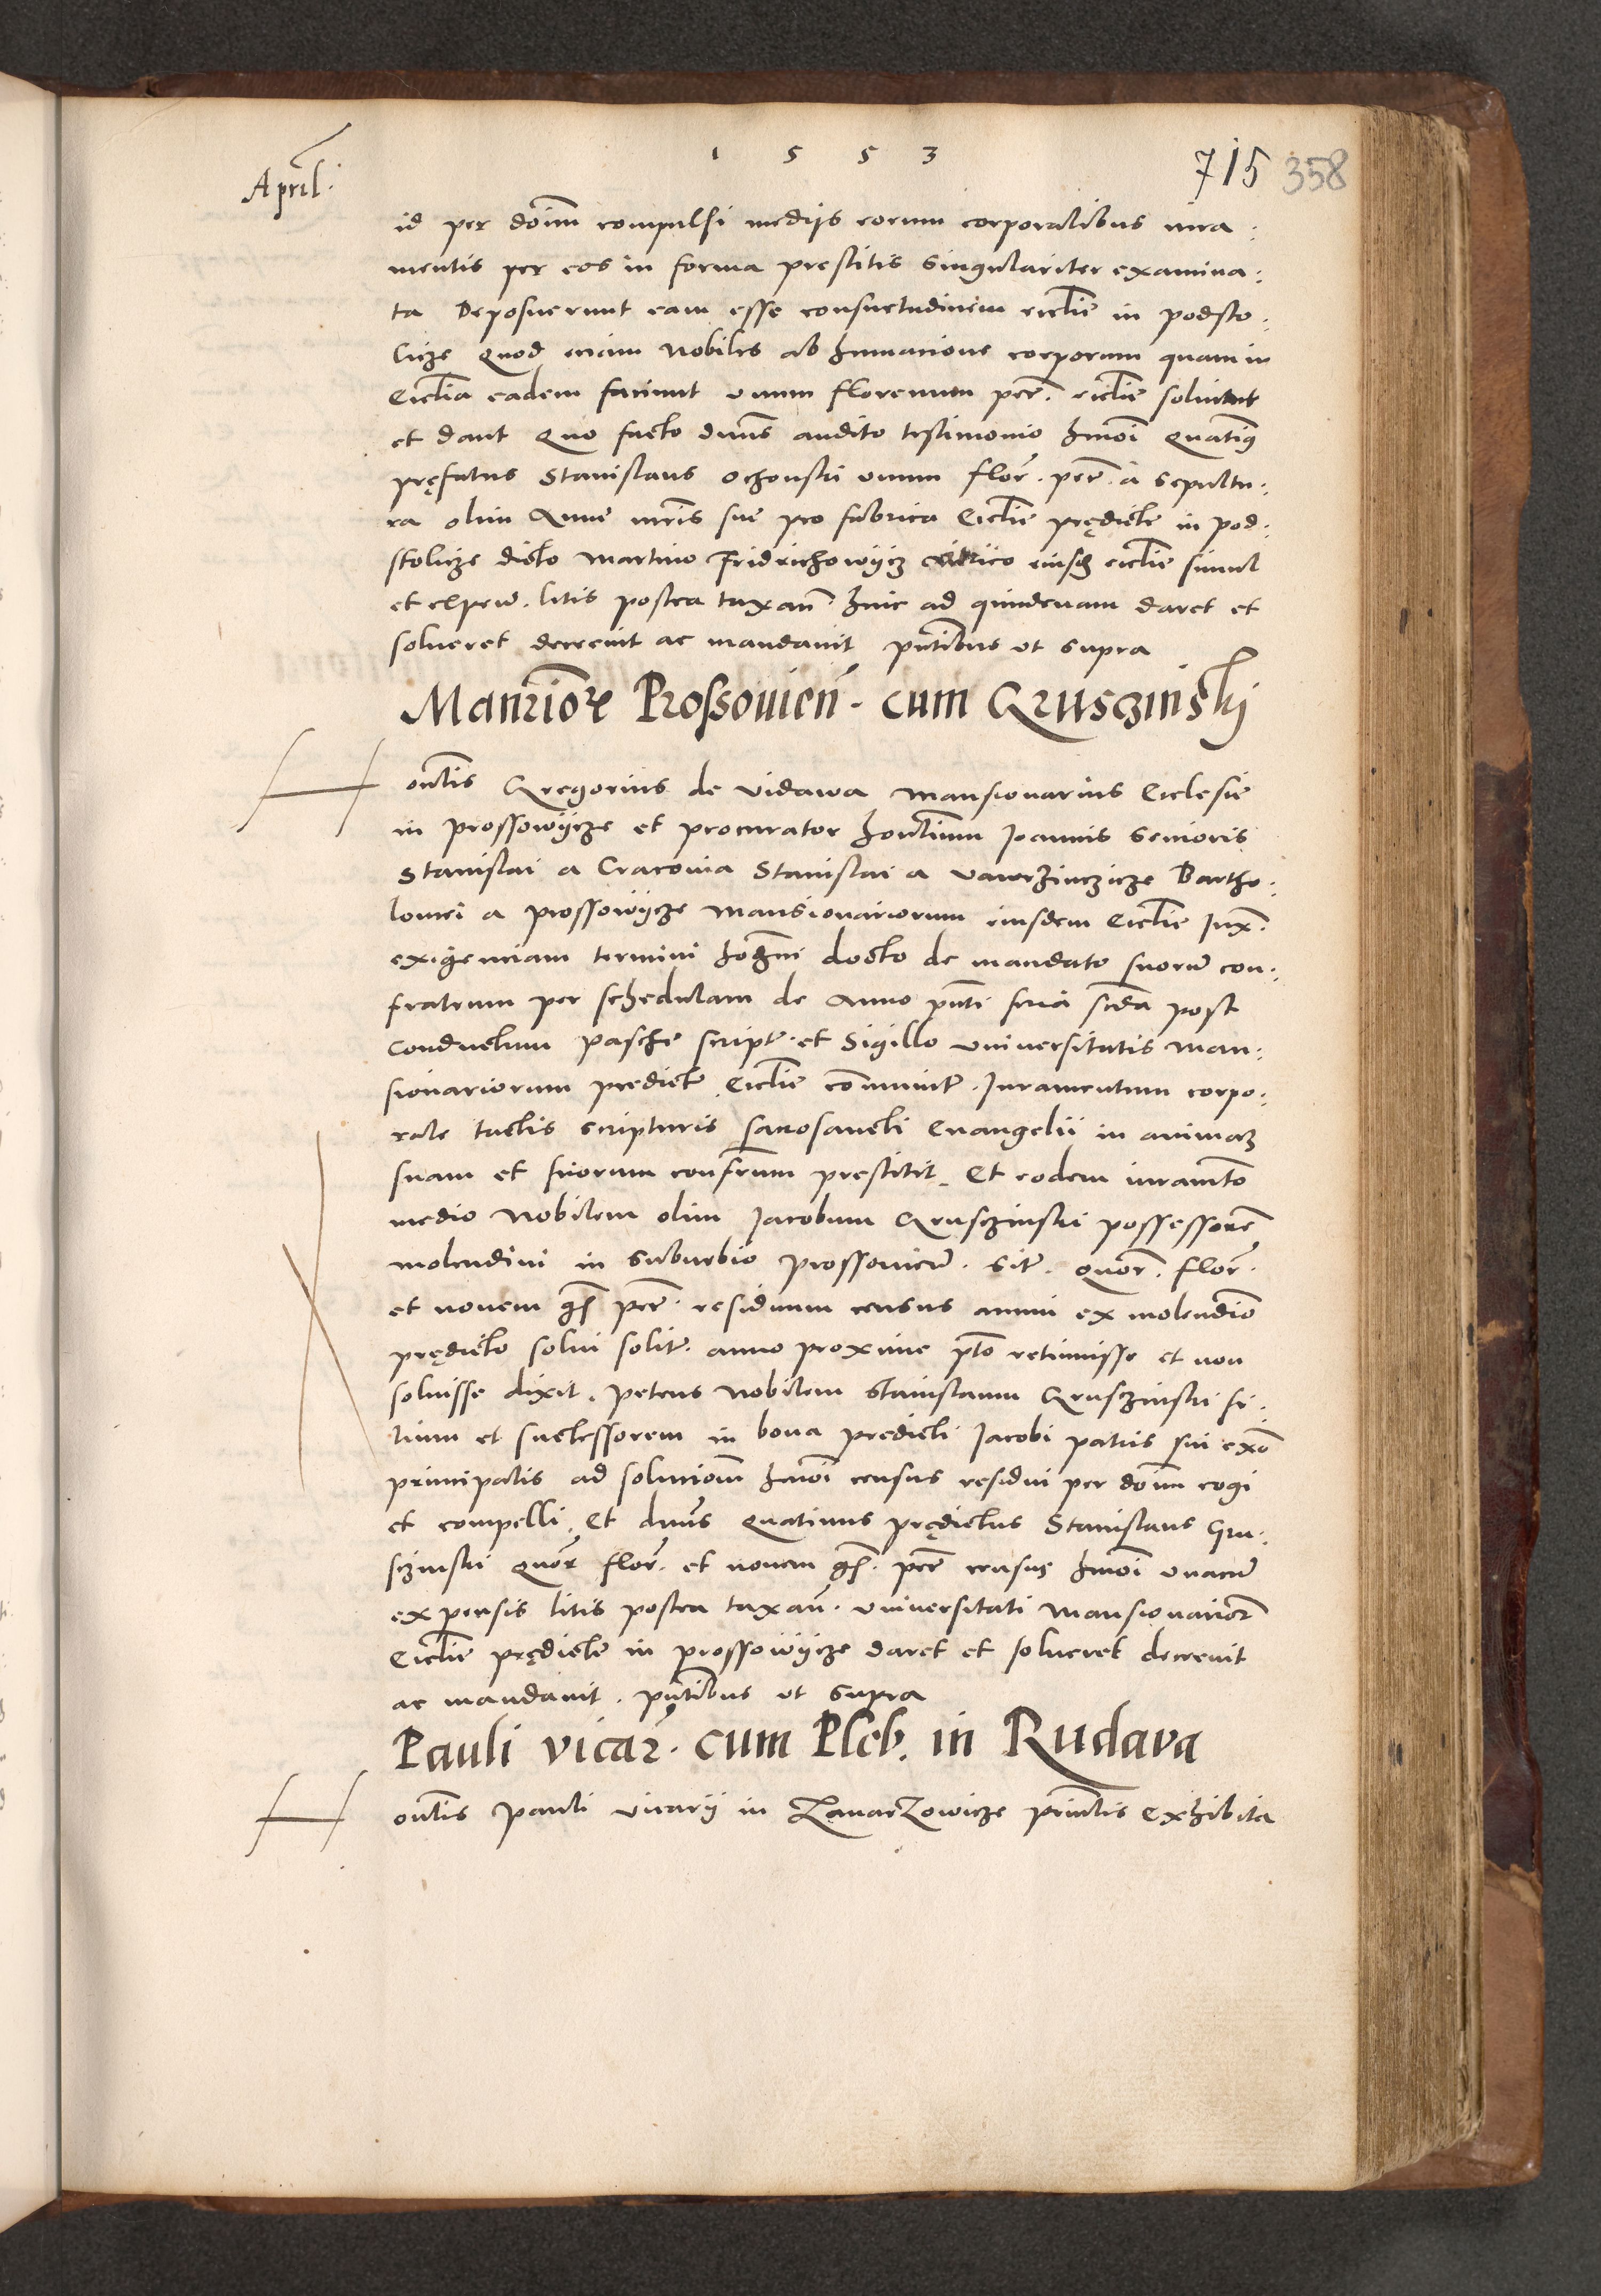 1 5 5 3
715 358
Aprīl.
id per dōim compulsi medijs eorum corporalibus iura:
mentis per eos in forma prestitis singulariter examina:
ta Deposuerunt eam esse consuetudinem ecclīe in podsto:
licze Quod eciam Nobiles ab humacione corporum quam in
Ecclīa eadem faciunt vnum florenum pec̄. ecclīe soluunt
et dant Quo facto dnūs audito testimonio hmōi Quatinꝫ
pręfatus Stanislaus Ochonski vnum flor̄. pec̄. a sepultu:
ra olim Anne mr̄is sue pro fabrica Ecclīe prędicte in pod:
stolicze dicto Martino Fridrichowijcz vitrico eiusd̄ ecclīe simul
et expen̄. litis postea taxan̄ hinc ad quindenam daret et
solueret decreuit ac mandauit pn̄tibus vt supra
Manrior̄ Prossouien̄. cum Gruszinskj
H
on̄lis Gregorius de Vidawa Mansionarius Ecclesie
in prossowijcze et procurator hon̄lium Joannis Senioris
Stanislai a Cracouia Stanislai a vawrzinczicze Bartho:
lomei a prossowijcze Mansionariorum eiusdem Ecclīe Jux̄.
exigenciam termini hodier̄ni docto de mandato suorū con:
fratrum per schedulam de Anno pn̄ti feria sc̄da post
Conductum Pasche script. et Sigillo vniuersitatis Man:
sionariorum predicte Ecclīe com̄unit. Juramentum corpo:
rale tactis scripturis sacrosancti Euangelii in animaꝫ
suam et suorum confr̄um prestitit. Et eodem iuramēto
medio Nobilem olim Jacobum Gruszinski possessorē
molendini in suburbio prossouien̄. sit. quor̄. flor̄.
et nouem gr̄ pec̄. residuum census annui ex molendīo
prędicto solui solit. anno proxime pr̄to retinuisse et non
soluisse dixit. petens Nobilem Stanislaum Gruszinski fi:
lium et successorem in bona predicti Jacobi patris sui exō
principalis ad soluciōm hmōi census residui per dōim cogi
et compelli. Et dnūs Quatinus prędictus Stanislaus Gru:
szinski quor̄ flor̄. et nouem gr̄. pec̄ census hmōi vnacū
expensis litis postea taxan̄. vniuersitati Mansionarior̄
Ecclīe prędicte in prossowijcze daret et solueret decreuit
ac mandauit. pn̄tibus vt supra
Pauli vicar̄. cum Pleb. in Rudava
H
on̄lis Pauli vicarij in Lavarzowicze prn̄cīlis Exhibita